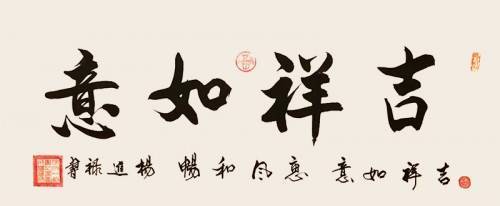 吉祥如意
吉祥如意惠风和畅 楊進禄書